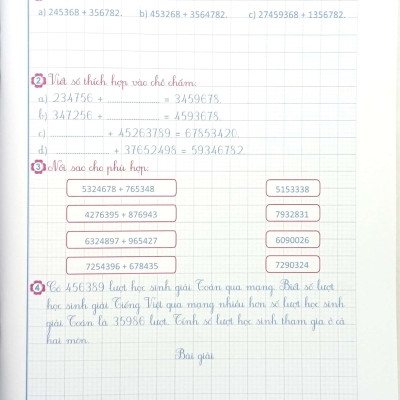 a) 245368 + 356782. b) 453268 + 3564782. c) 27459368 + 1356782.
2 Viết số thích hợp vào chỗ chấm:
a) 234756 + ............ = 3459678.
b) 347256 + ............ = 4593678.
c) ............ + 45263789 = 67853420.
d) ............ + 37652498 = 59346782.
3 Nối sao cho phù hợp:
5324678 + 765348 5153338
4276395 + 876943 7932831
6324897 + 965427 6090026
7254396 + 678435 7290324
4 Có 456389 lượt học sinh giải Toán qua mạng. Biết số lượt
học sinh giải Tiếng Việt qua mạng nhiều hơn số lượt học sinh
giải Toán là 35986 lượt. Tính số lượt học sinh tham gia ở cả
hai môn.
Bài giải